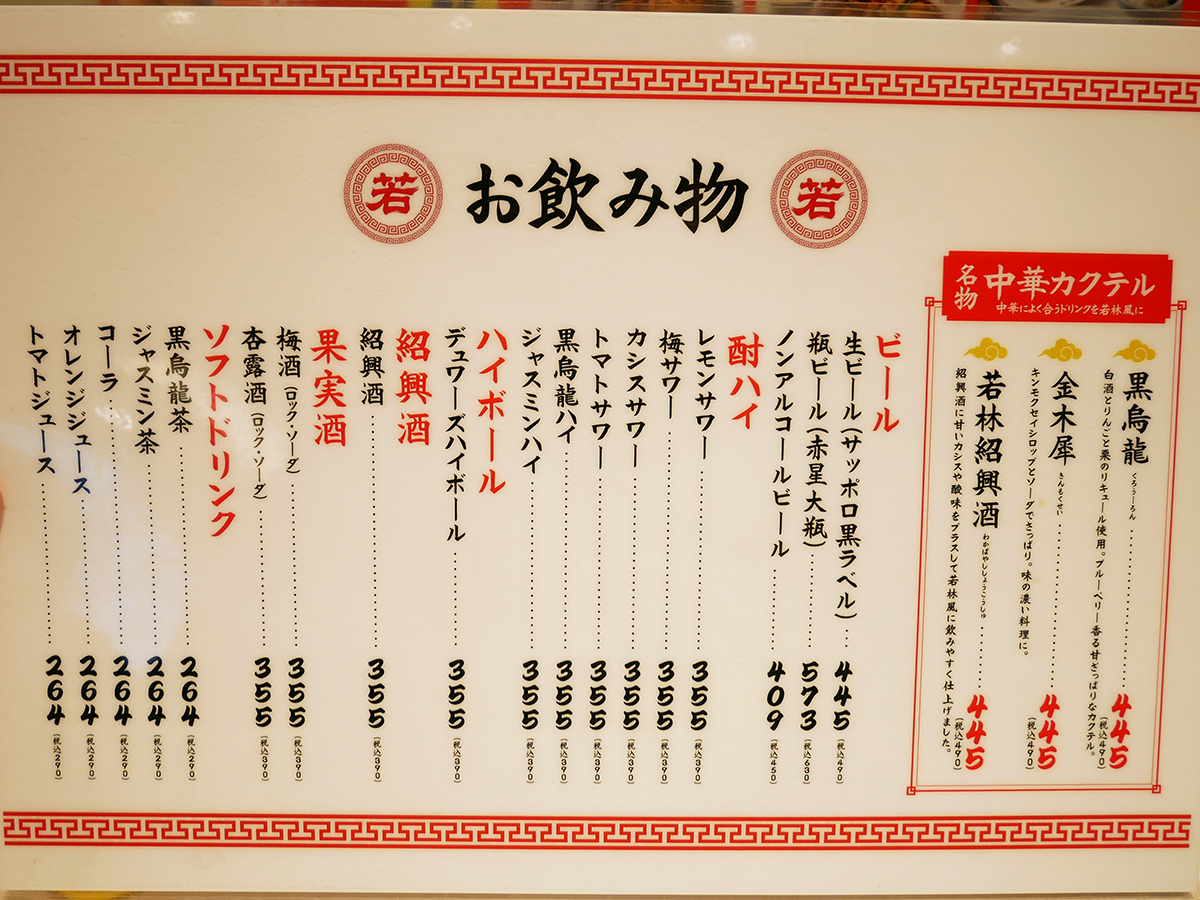 若 お飲み物 若
名物 中華カクテル
中華によく合うドリンクを若林風に
黒烏龍 くろうーろん 445 (税込490)
白酒とりんごと栗のリキュール使用。ブルーベリー香る甘ざっぱりなカクテル。
金木犀 きんもくせい 445 (税込490)
キンモクセイシロップとソーダでさっぱり。味の濃い料理に。
若林紹興酒 わかばやししょうこうしゅ 445 (税込490)
紹興酒に甘いカシスや酸味をプラスして若林風に飲みやすく仕上げました。
ビール
生ビール(サッポロ黒ラベル) 445 (税込490)
瓶ビール(赤星大瓶) 573 (税込630)
ノンアルコールビール 409 (税込450)
酎ハイ
レモンサワー 355 (税込390)
梅サワー 355 (税込390)
カシスサワー 355 (税込390)
トマトサワー 355 (税込390)
黒烏龍ハイ 355 (税込390)
ジャスミンハイ 355 (税込390)
ハイボール
デュワーズハイボール 355 (税込390)
紹興酒
紹興酒 355 (税込390)
果実酒
梅酒(ロック・ソーダ) 355 (税込390)
杏露酒(ロック・ソーダ) 355 (税込390)
ソフトドリンク
黒烏龍茶 264 (税込290)
ジャスミン茶 264 (税込290)
コーラ 264 (税込290)
オレンジジュース 264 (税込290)
トマトジュース 264 (税込290)